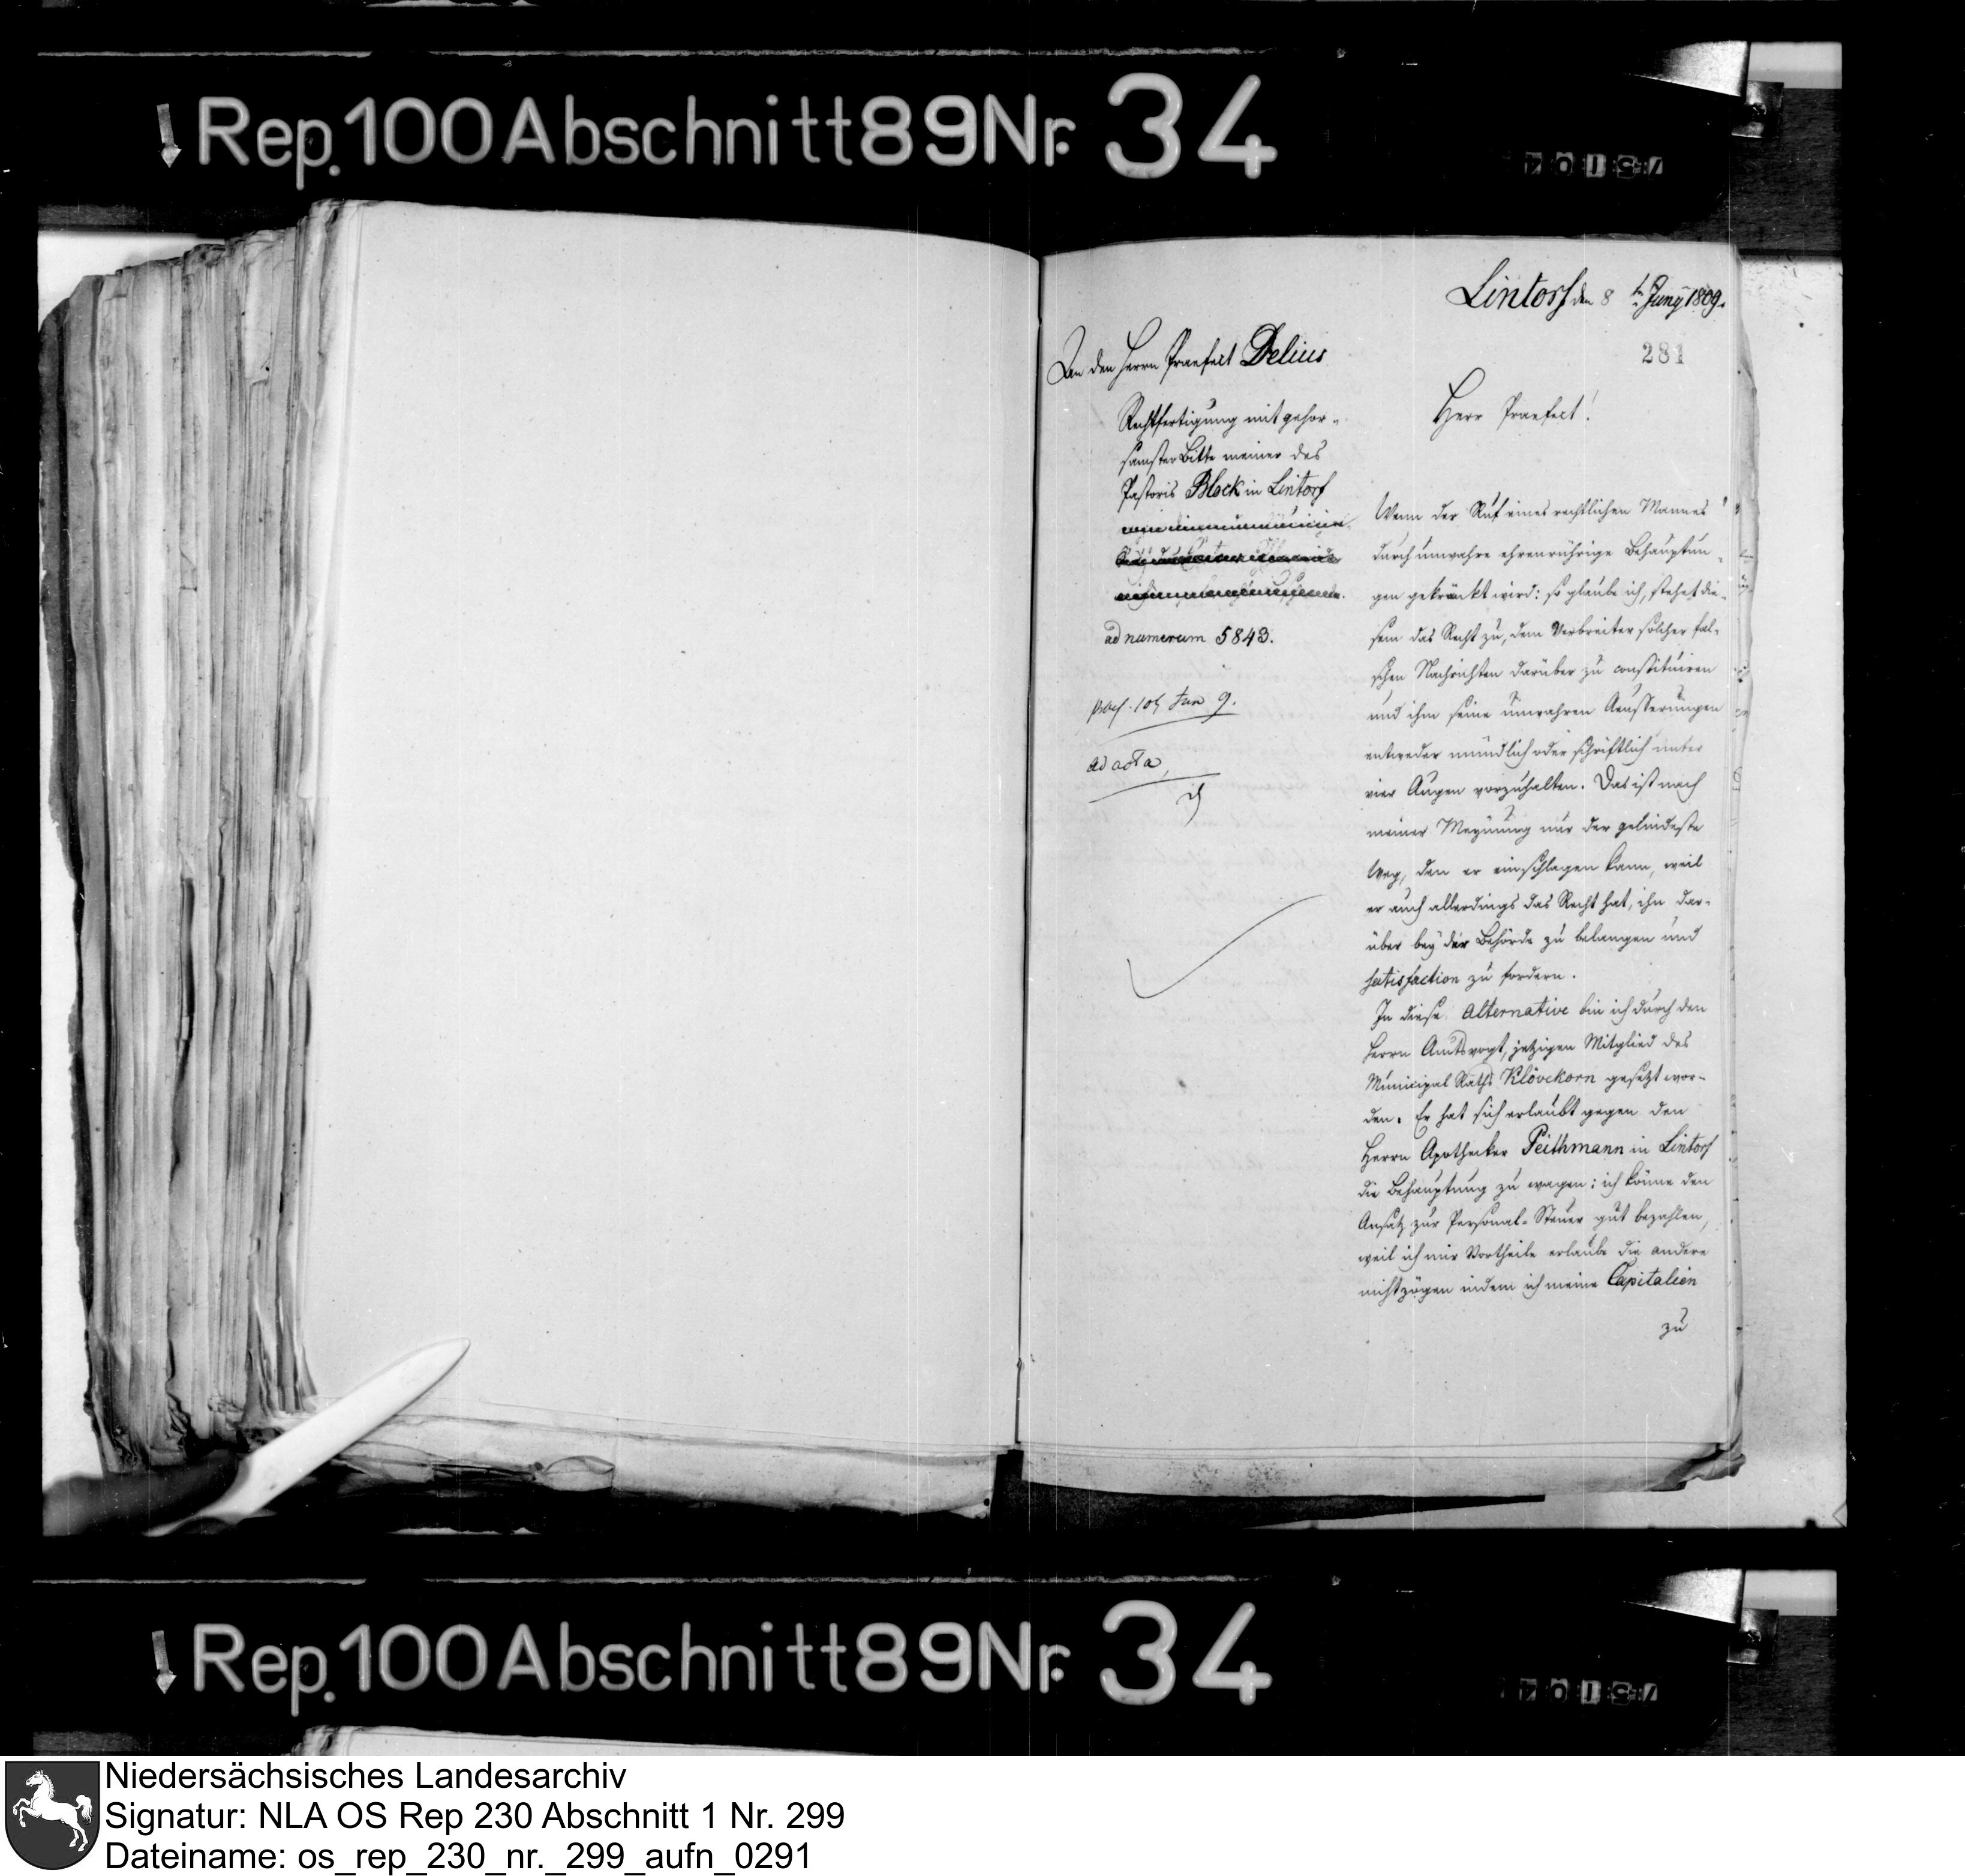 Rep. 100 Abschnitt 89 Nr. 34
Lintorf den 8 ten Juny 1809.
281
An den Herrn Praefect Delius
Rechtfertigung mit gehor-
samster Bitte meiner des
Pastoris Block in Lintorf
ad numerum 5843.
ad acta
Herr Praefect!
Wenn der Ruf eines rechtlichen Mannes
durch unwahre ehrenrührige Behauptun-
gen gekränkt wird: so glaube ich, stehet die-
sem das Recht zu, dem Verbreiter solcher fal-
schen Nachrichten darüber zu constituiren
und ihm seine unwahren Aeusserungen
entweder mündlich oder schriftlich unter
vier Augen vorzuhalten. Das ist nach
meiner Meynung nur der gelindeste
Weg, den er einschlagen kann, weil
er auch allerdings das Recht hat, ihn dar-
über bey der Behörde zu belangen und
satisfaction zu fordern.
In diese Alternative bin ich durch den
Herrn Amtsvogt, jetzigen Mitglied des
Municipal Raths Klövekorn gesetzt wor-
den. Er hat sich erlaubt gegen den
Herrn Apotheker Peithmann in Lintorf
die Behauptung zu wagen: ich könne den
Ansatz zur Personal-Steuer gut bezahlen,
weil ich mir Vortheile erlaube die andere
nicht zögen indem ich meine Capitalien
zu
Rep. 100 Abschnitt 89 Nr. 34
Niedersächsisches Landesarchiv
Signatur: NLA OS Rep 230 Abschnitt 1 Nr. 299
Dateiname: os_rep_230_nr._299_aufn_0291